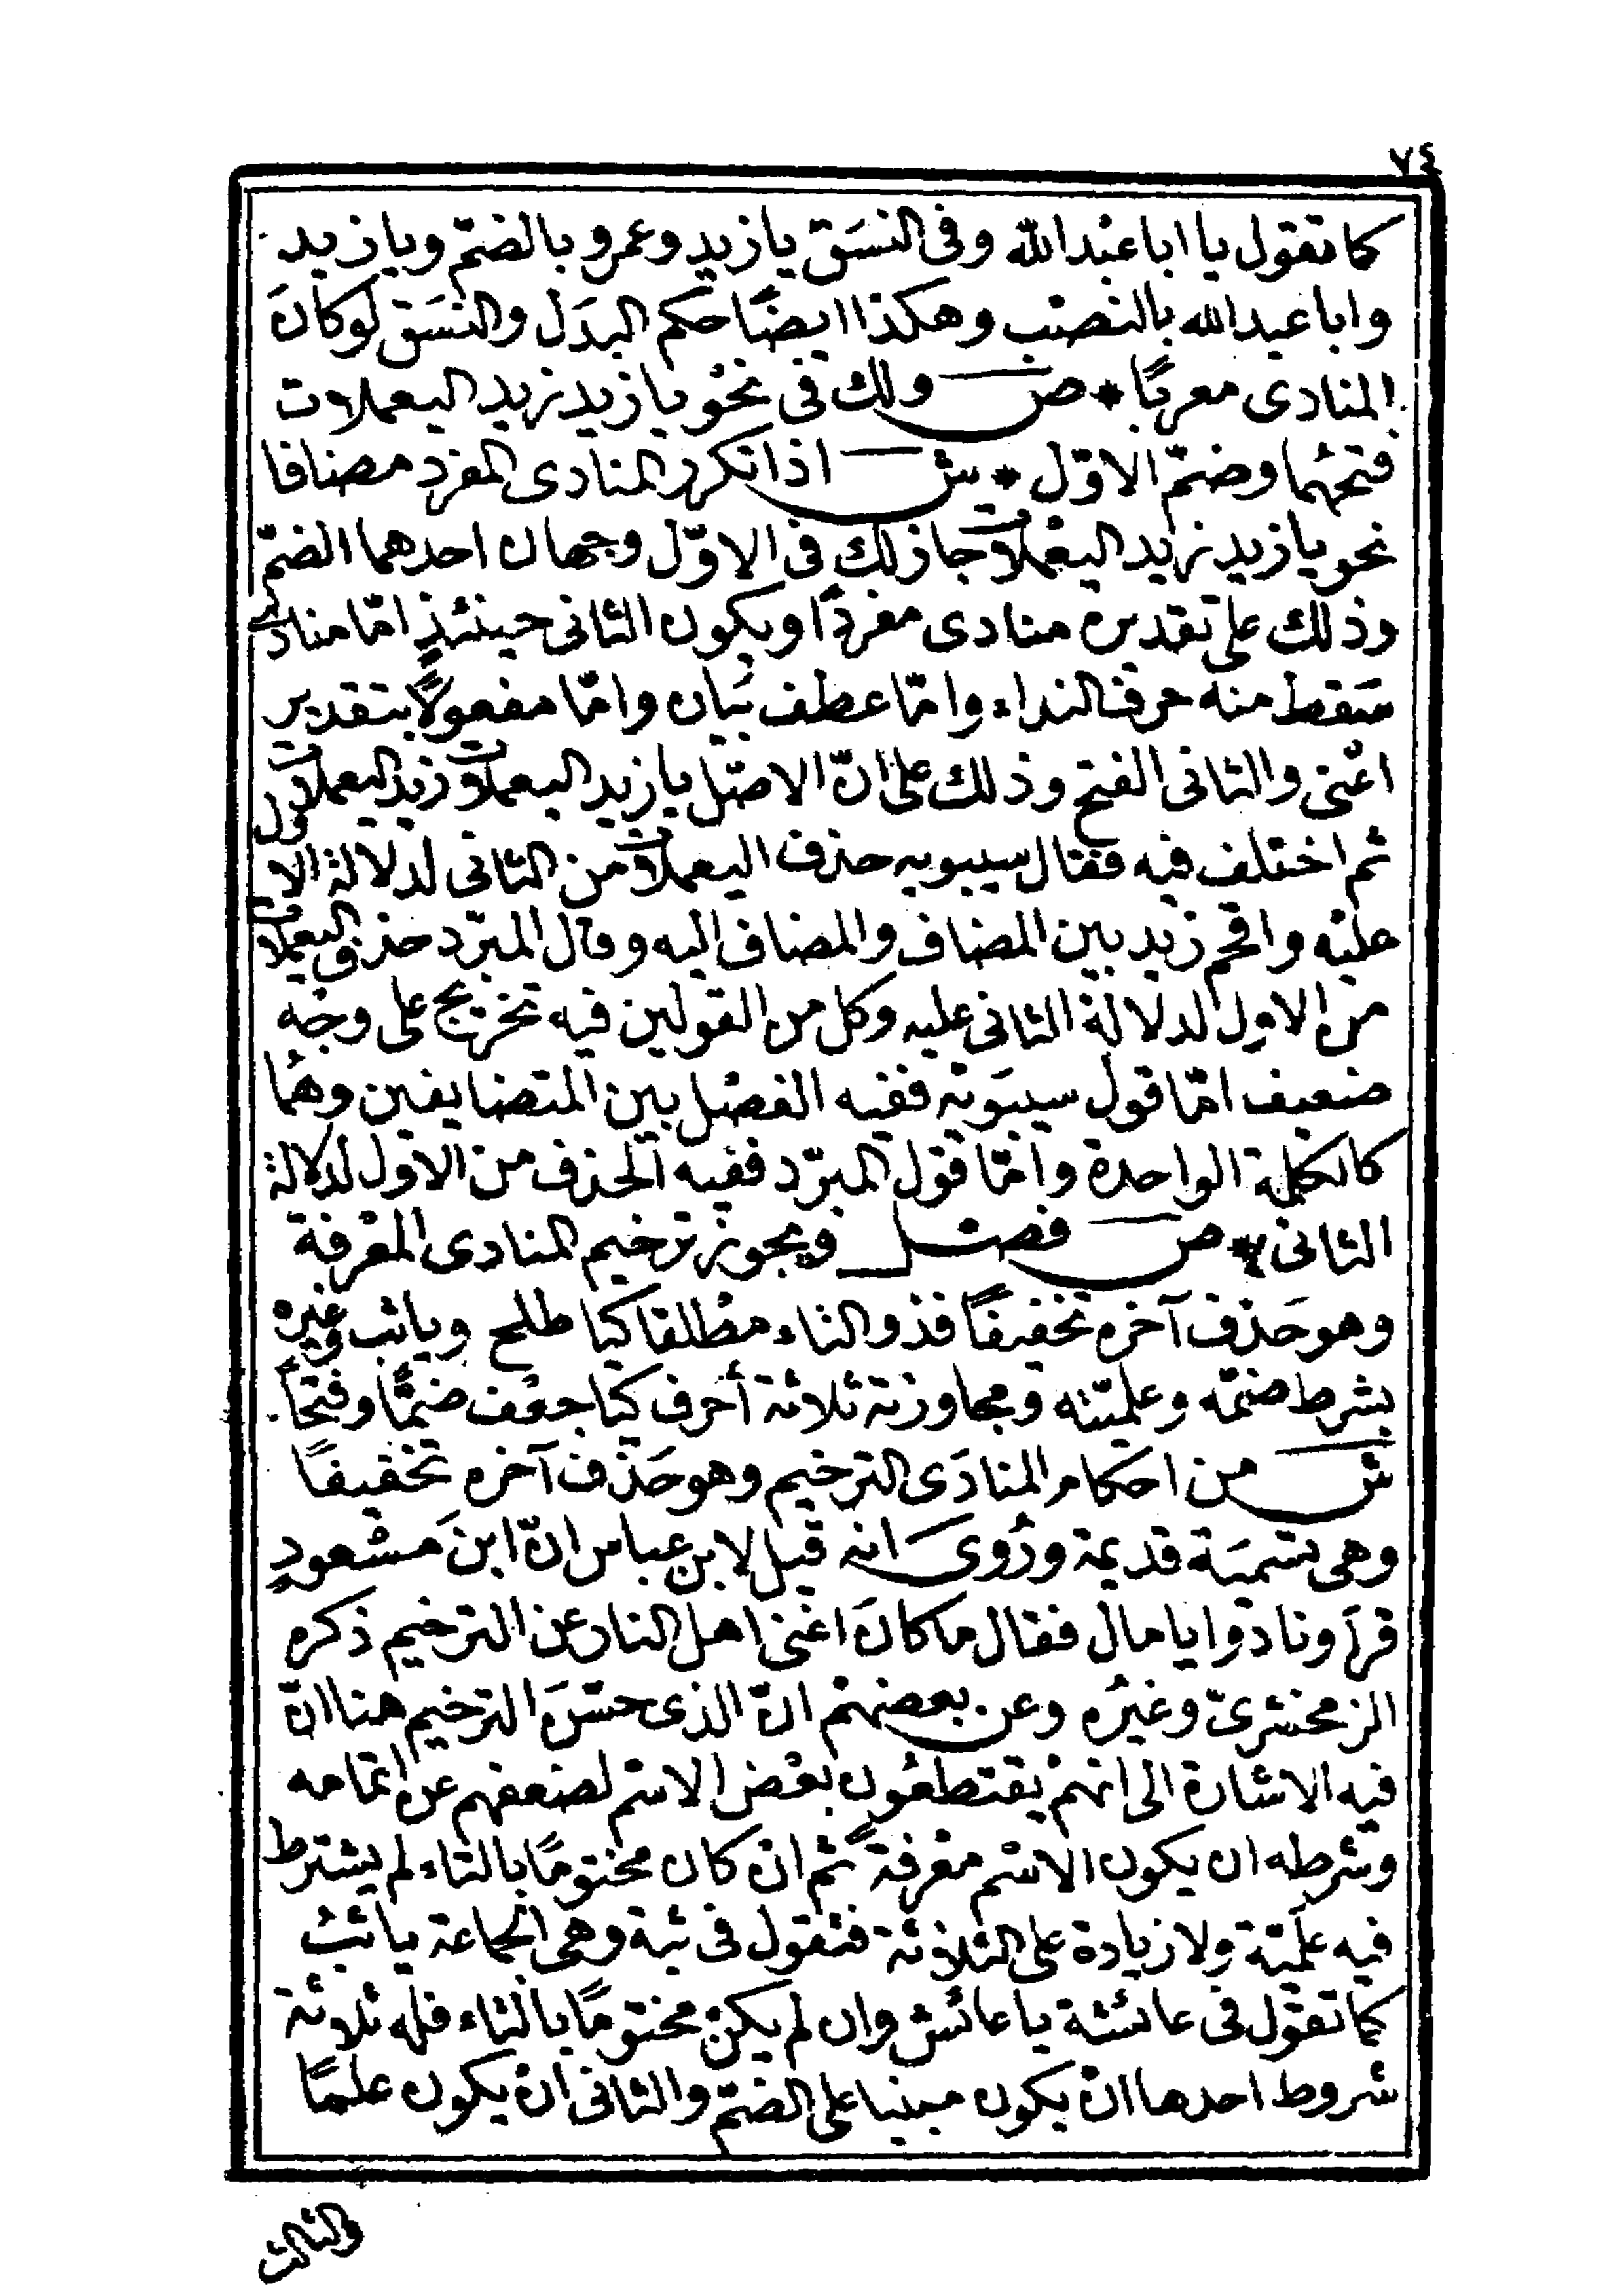 ٧٤
كما تقول يا ابا عبد الله وفى النسَق يا زيد وعمرو بالضمّ ويا زيد
وابا عبد الله بالنصْب وهكذا ايضًا حكم البدَل والنسَق لو كانَ
المنادى معربًا * ص ولك فى نحْو يا زيد زيد اليعملات
فتحهُما وضمّ الاوّل * ش اذا تكرر المنادى المفرد مضافا
نحو يا زيد زيد اليعْملات جاز لك فى الاوّل وجهان احدهما الضمّ
وذلك على تقديره منادى مفردًا ويكون الثانى حينئذٍ امّا منادى
سَقط منه حرف النداء وامّا عطف بَيان وامّا مفعولًا بتقدير
اعْنى والثانى الفتح وذلك على انّ الاصْل يا زيد اليعملات زيد اليعملات
ثم اختلف فيه فقال سيبويه حذف اليعملات من الثانى لدلالة الاول
عليْه واقحم زيد بين المضاف والمضاف اليه وقال المبرّد حذف اليعملات
من الاول لدلالة الثانى عليه وكل من القولين فيه تخريج على وجْه
ضعيف امّا قول سيبَويْه ففيه الفصْل بين المتضايفين وهُما
كالكلمة الواحدة وامّا قول المبرّد ففيه الحذف من الاول لدلالة
الثانى * ص فصْل ويجوز ترخيم المنادى المعْرفة
وهو حَذف آخره تخفيفًا فذو التاء مطْلقا كيا طلح ويا ثب وغيره
بشرط ضمّه وعلميّته ومجاوزته ثلاثة أحرف كيا جعْف ضمًّا وفتحًا
ش من احكام المنادَى الترخيم وهو حَذف آخره تخفيفًا
وهى تسْميَة قديمة ورُوىَ انه قيل لابن عباس انّ ابنَ مسْعودٍ
قرَأ ونادوا يا مال فقال ما كانَ اغنى اهل النار عن الترخيم ذكره
الزمخشرىّ وغيْره وعن بعضهمْ انّ الذى حسّنَ الترخيم هنا انّ
فيه الاشارة الى انهمْ يقتطعُون بعْض الاسْم لضعفهم عن اتمامه
وشرطه ان يكون الاسْم معْرفةً ثم انْ كان مختومًا بالتاء لم يشترط
فيه علَميّة ولا زيادة على الثلاثة فتقول فى ثبة وهى الجماعة يا ثبُ
كما تقول فى عائشة يا عائش وان لم يكنْ مختومًا بالتاء فله ثلاثة
شروط احدها انْ يكون مبنيا على الضمّ والثانى انْ يكون علمًا
والثالث